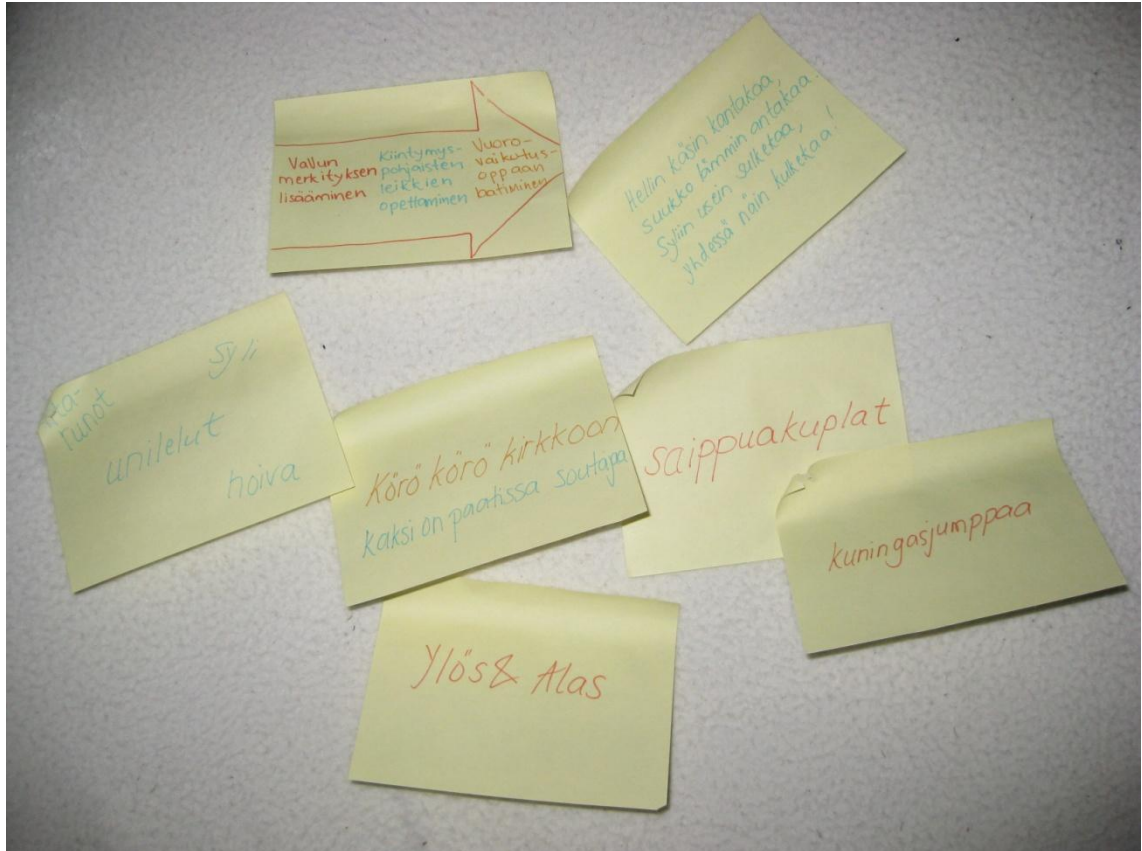 Vallun
merkityksen
lisääminen
Kiintymys-
pohjaisten
leikkien
opettaminen
Vuoro-
vaikutus-
oppaan
laatiminen
Hellin käsin kantakaa,
suukko lämmin antakaa.
Syliin usein sulkekaa,
yhdessä näin kulkekaa!
runot
Syli
unilelut
hoiva
Körö körö kirkkoon
kaksi on paatissa soutajaa
saippuakuplat
kuningasjumppaa
Ylös & Alas